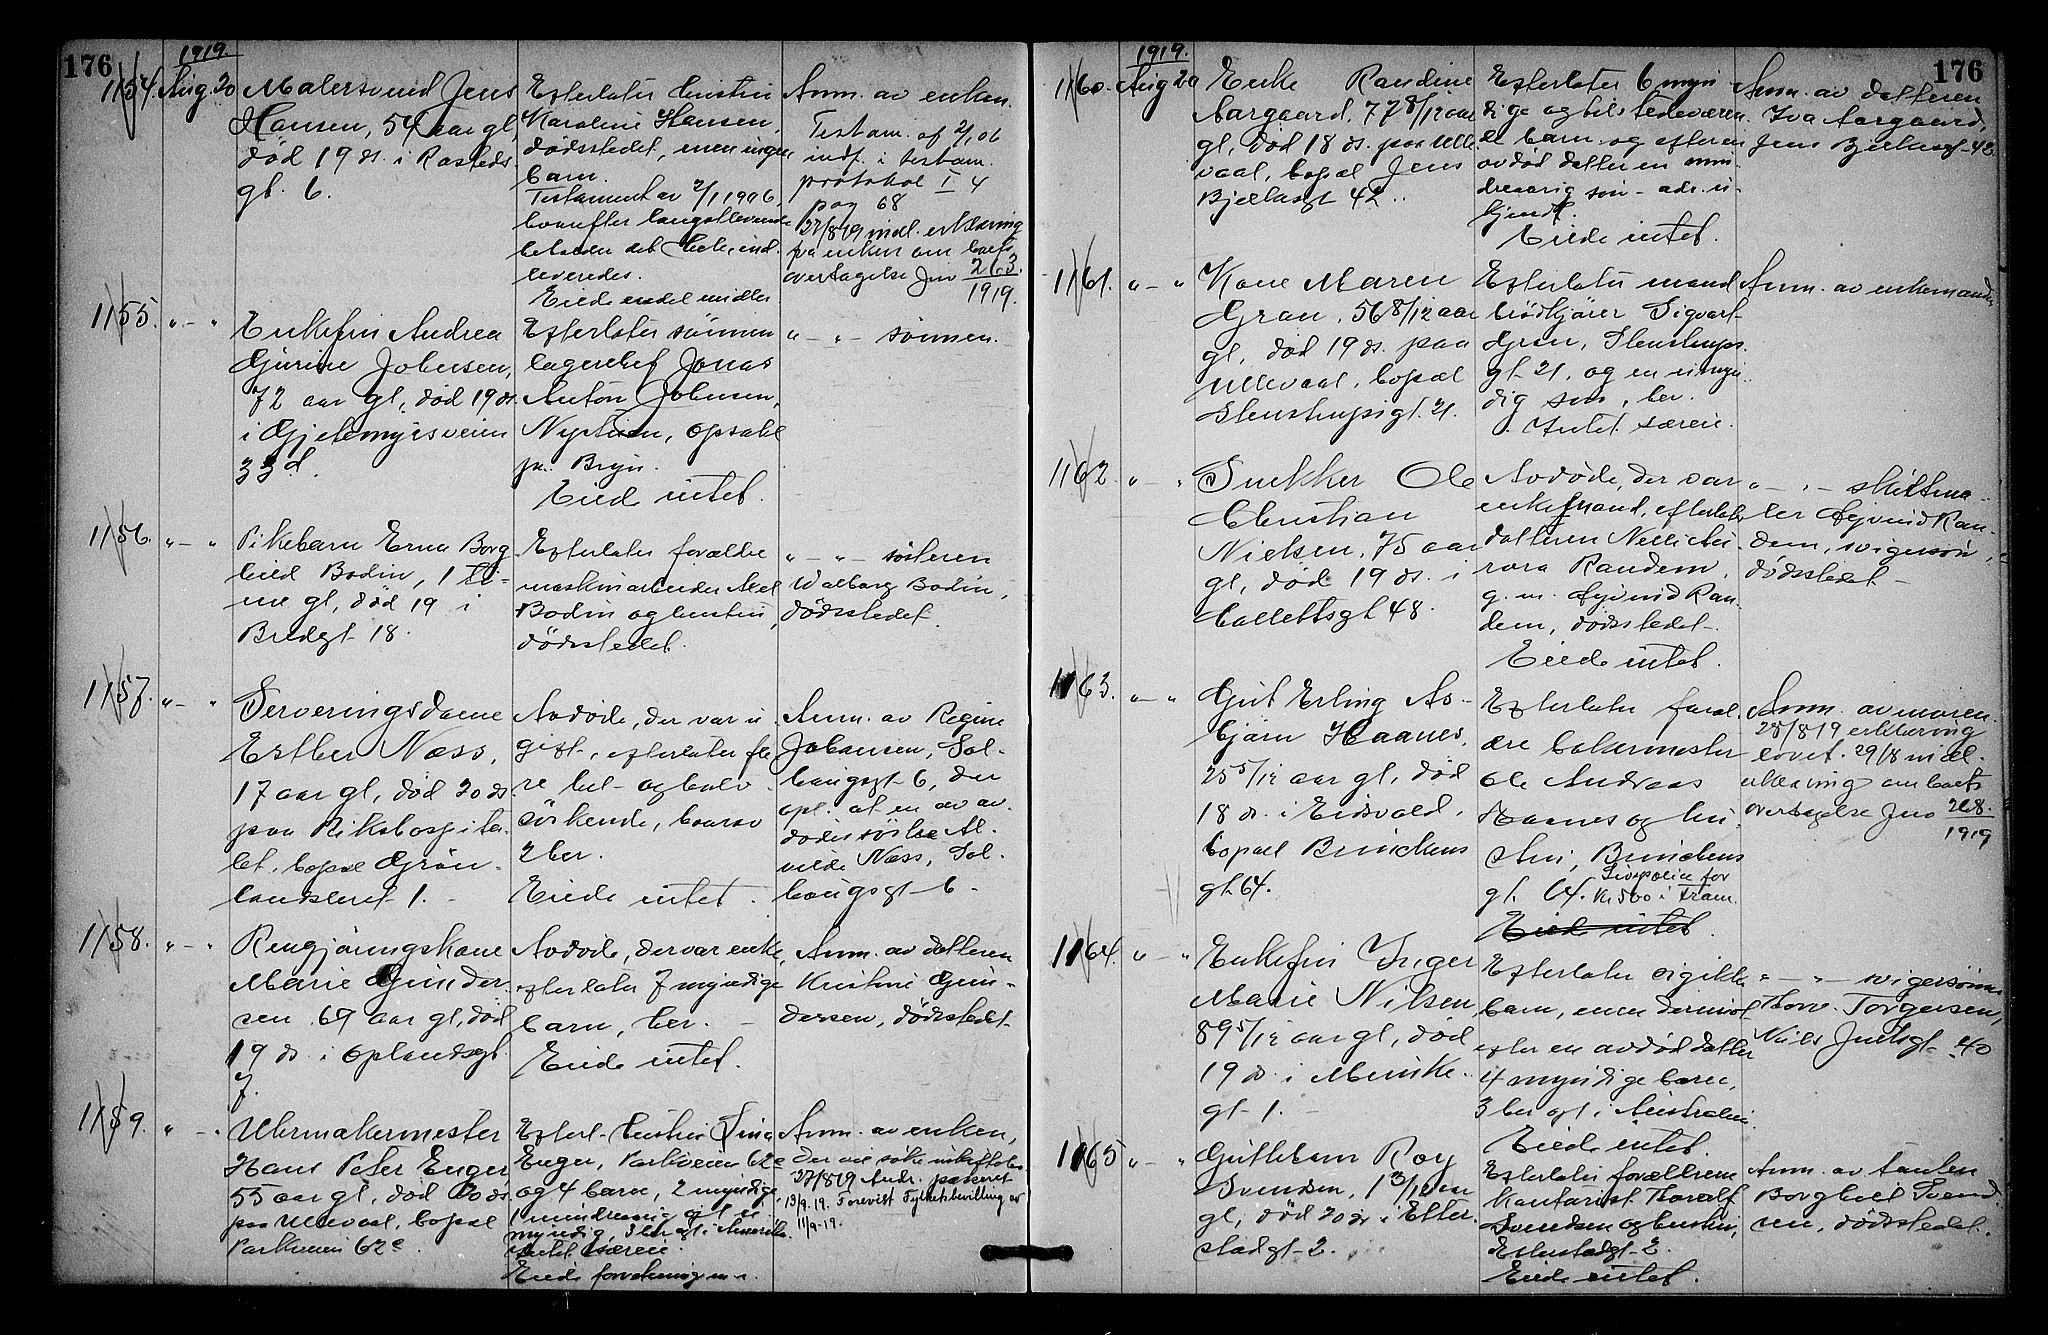 176
1919.
1154. Aug 20
Malersvend Jens
Hansen, 54 aar gl,
død 19 ds. i Rosteds
gt. 6.
Efterlater hustru
Karoline Hansen,
dødsstedet, men ingen
barn.
Testament av 2/1 1906,
hvorefter længstlevende
beholder det hele, ind-
leveredes.
Eiede endel midler
Anm. av enken.
Testam. af 2/1 06
indf. i testam.
protokol I 4
pag 68
27/8 19 indl. erklæring
fra enken om boets
overtagelse Jno 263.
1919.
1155. " - "
Enkefru Andrea
Gurine Johnsen,
72 aar gl, død 19 ds.
i Gjetemyrsveien
33d.
Efterlater sönnen
lagerchef Jonas
Anton Johnsen,
opsahl
pr. Bryn.
Eied intet.
" - " - sönnen.
1156. " - "
Pikebarn Erna Borg
hild Bodin, 1 ti-
me gl, død 19 i
Bredgt 18.
Efterlater forældre
maskinarbeider Axel
Bodin og hustru,
dødsstedet.
" - " - søsteren
Walborg Bodin,
dødsstedet.
1157. " - "
Serveringsdame
Esther Næss,
17 aar gl, død 20 ds
paa Rikshospita-
let, bopæl Grön-
landsleret 1.
Avdöde, der var u
gift, efterlater fle
re hel- og halv
söskende, hvorav
2 her.
Eiede intet.
Anm. av Regine
Johansen, Sol-
haugsgt 6, der
opl. at en av av-
dödes söstre Al-
vilde Næss, Sol-
haugsgt 6.
1158. " - "
Rengjöringskone
Marie Gunder-
sen 69 aar gl, død
19 ds. i Oplandsgt.
7.
Avdöde, der var enke,
efterlater 7 myndige
barn, her.
Eiede intet.
Anm. av datteren
Kristine Gun-
dersen, dødsstedet
1159. " - "
Uhrmakermester
Hans Peter Enger
55 aar gl, død 20 ds
paa Ullevaal, bopæl
Parkveien 62c.
Efterl. hustru Lina
Enger, Parkveien 62c
og 4 barn, 2 myndige,
1 mindreaarig
myndig, 3 her og 1 i Amerika.
Intet særeie.
Eiede forretning m.v.
Anm. av enken,
der vil søke uskiftebo.
27/8 19 Andr. passeret
13/9 19. Forevist Fylketsbevilling av
11/9-19.
176
1919.
1160. Aug 20
Enke Randine
Aargaard, 77 8/12 aar
gl, død 18 ds. paa Ulle
vaal, bopæl Jens
Bjelkesgt 42.
Efterlater 6 myn
dige og tilstedeværen
de barn og efter en
avdød datter en min-
dreaarig sön - adr. u-
kjendt.
Eiede intet.
Anm. av datteren
Iva Aargaard,
Jens Bjelkesgt 42
1161. " - "
Kone Maren
Gran, 56 8/12 aar
gl, død 19 ds. paa
Ullevaal, bopæl
Stenstrupsgt. 21.
Efterlater mand
brödkjörer Sigvart
Gran, Stenstrups.
gt. 21, og en umyn-
dig sön, her.
Intet særeie.
Anm. av enkemanden
1162. " - "
Snekker Ole
Christian
Nielsen, 75 aar
gl, død 19 ds. i
Collettsgt 48.
Avdöde, der var
enkemand, efterlater
datteren Nelli Au-
rora Randem,
g. m. Øyvind Ran-
dem, dødsstedet.
Eiede intet.
" - " - skiltma-
ler Øyvind Ran-
dem, svigersön,
dødsstedet
1163. " - "
Gut Erling As-
björn Haanes,
25 5/12 aar gl, død
18 ds. i Eidsvold,
bopæl Brinckens
gt 64.
Efterlater foræl-
dre bakermester
Ole Andreas
Haanes og hu-
stru, Brinckens
gt. 64. Livspolice for
Kr 500 i Fram.
Eiede intet.
Anm. av moren.
28/8 19 erklæring
lovet. 29/8 indl.
erklæring om boets
overtagelse Jno 268.
1919
1164. " - "
Enkefru Inger
Marie Nilsen
89 5/12 aar gl, død
19 ds. i Munke-
gt 1.
Efterlater ei gifte
barn, men derimot
efter en avdød datter
4 myndige barn,
3 her og 1 i Australien.
Eiede intet.
" - " - svigersönnen
Thorv. Torgersen,
Niels Juelsgt 40
1165 " - "
Guttebarn Roy
Svendsen, 1 3/12 aar
gl, död 20 ds i Etter-
stadgt 2.
Efterlater forældrene
kontorist Thoralf
Svendsen og hustru,
Etterstadgt 2.
Eiede intet.
Anm. av tanten
Borghild Svend
sen, dødsstedet.